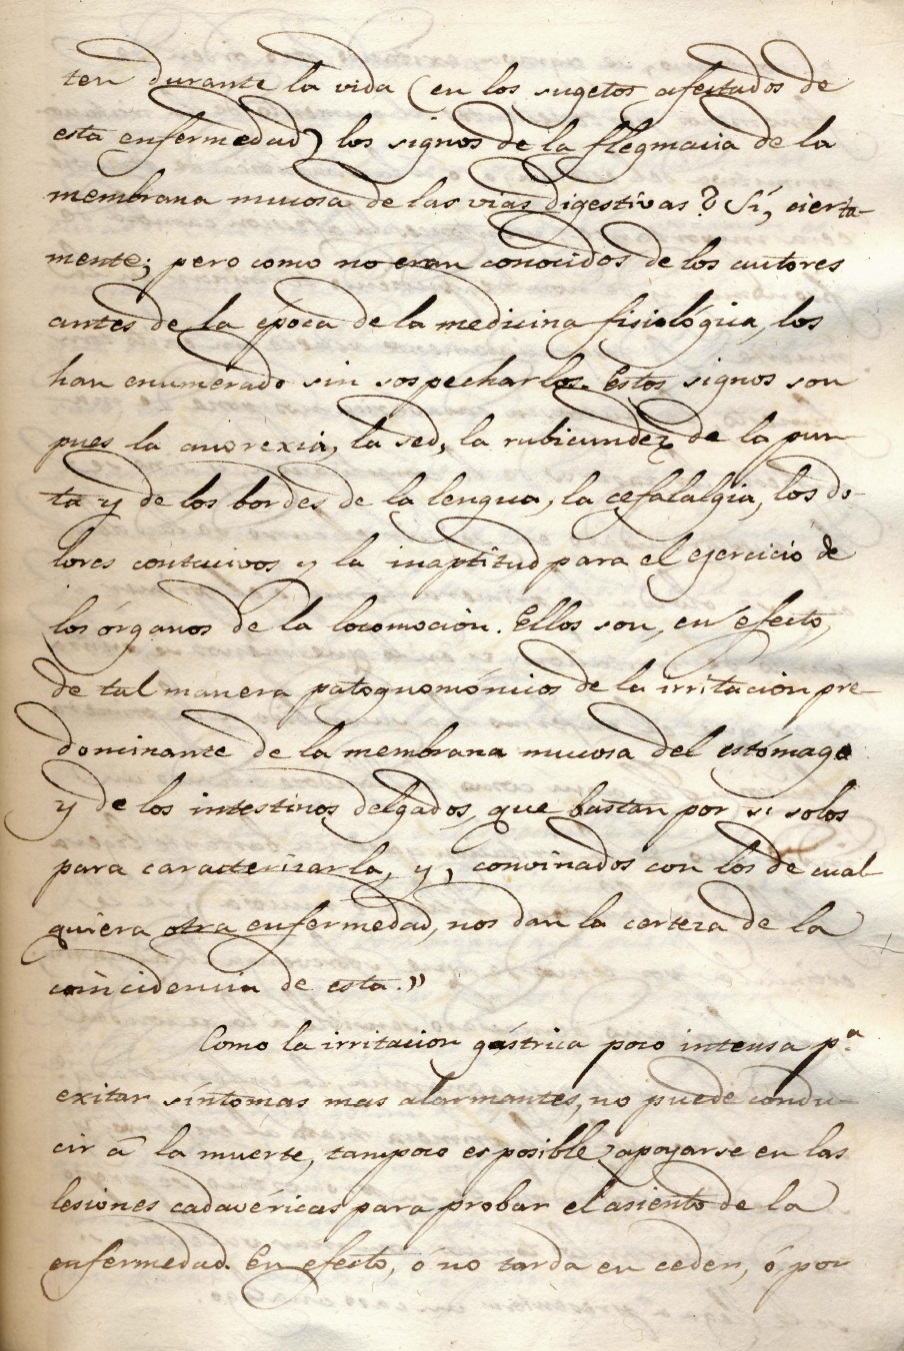 ten durante la vida (en los sugetos afectados de
esta enfermedad) los signos de la flegmacia de la
membrana mucosa de las vias digestivas? Sí, cierta-
mente; pero como no eran conocidos de los autores
antes de la época de la medicina fisiológica, los
han enumerado sin sospecharlos. Estos signos son
pues la anorexia, la sed, la rubicundez de la pun-
ta y de los bordes de la lengua, la cefalalgia, los do-
lores contusivos y la inaptitud para el ejercicio de
los órganos de la locomoción. Ellos son, en efecto,
de tal manera patognomónicos de la irritacion pre-
dominante de la membrana mucosa del estómago
y de los intestinos delgados, que bastan por si solos
para caracterizarla, y, convinados con los de cual
quiera otra enfermedad, nos dan la certeza de la
coincidencia de esta."
Como la irritacion gástrica poco intensa p.ª
exitar síntomas mas alarmantes, no puede condu-
cir á la muerte, tampoco es posible apoyarse en las
lesiones cadavéricas para probar el asiento de la
enfermedad. En efecto, ó no tarda en ceder, ó por